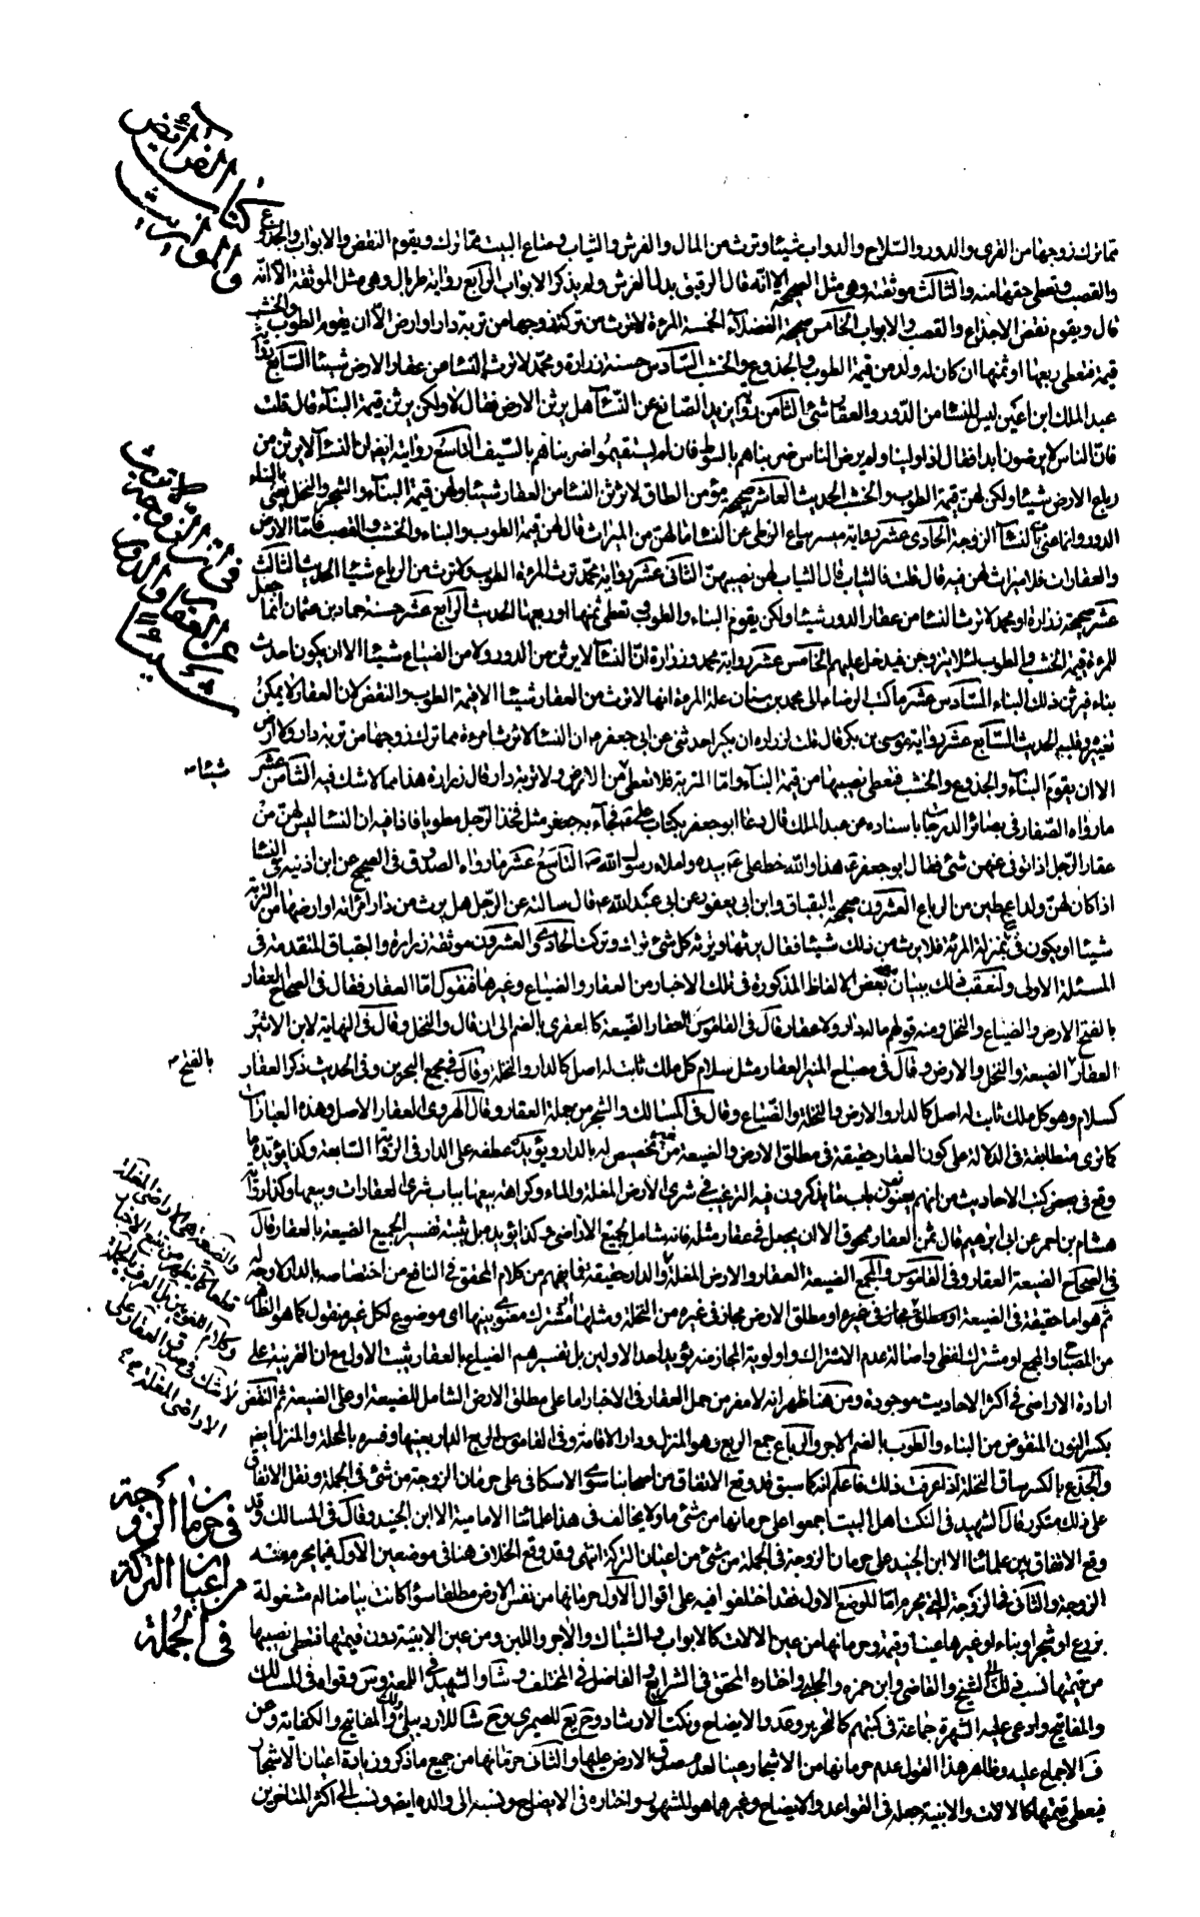 كتاب الفرائض
والمواريث
مما ترك زوجها من القرى والدور والسلاح والدواب شيئا وترث من المال والفرش والثياب ومتاع البيت مما ترك ويقوم النقض والابواب والجذوع
والقصب وتعطى حقها منه والثالث موثقته وهى مثل الصحيحة الا انه قال الرقيق بدل الفرش ولم يذكر الابواب الرابع رواية طربال وهى مثل الموثقة الا انه
قال ويقوم نقض الاجذاع والقصب والابواب الخامس صحيحة الفضلاء الخمسة المرءة لا ترث من تركة زوجها من تربة دار او ارض الا ان يقوم الطوب والخشب
قيمة فتعطى ربعها او ثمنها ان كان له ولد من قيمة الطوب والجذوع والخشب السادس حسنة زرارة ومحمد لا ترث النساء من عقار الارض شيئا السابع رواية
عبد الملك ابن اعين ليس للنساء من الدور والعقار شئ الثامن رواية يزيد الصائغ عن النساء هل يرثن الارض فقال لا ولكن يرثن قيمة البناء قال قلت
فان الناس لا يرضون بدا فقال اذا ولينا ولم يرض الناس ضربناهم بالسوط فان لم يستقيموا ضربناهم بالسيف التاسع روايته ايضا ان النساء لا يرثن من
رباع الارض شيئا ولكن لهن قيمة الطوب والخشب الحديث العاشر صحيحة مؤمن الطاق لا يرثن النساء من العقار شيئا ولهن قيمة البناء والشجر والنخل يعنى بالبناء
الدور وانما عنى بالنساء الزوجة الحادى عشر رواية ميسر بياع الزطى عن النساء ما لهن من الميراث قال لهن قيمة الطوب والبناء والخشب والقصب فاما الارض
والعقارات فلا ميراث لهن فيه قال قلت فالثياب قال الثياب لهن نصيبهن الثانى عشر رواية محمد ترث المرءة الطوب ولا ترث من الرباع شيئا الحديث الثالث
عشر صحيحة زرارة او محمد لا ترث النساء من عقار الدور شيئا ولكن يقوم البناء والطوب وتعطى ثمنها او ربعها الحديث الرابع عشر حسنة حماد بن عثمان انما جعل
للمرءة قيمة الخشب والطوب لئلا يتزوجن فيدخل عليهم الخامس عشر رواية محمد وزرارة ان النساء لا يرثن من الدور ولا من الضياع شيئا الا ان يكون احدث
بناء فيرثن ذلك البناء السادس عشر ما كتب الرضاء الى محمد بن سنان علة المرءة انها لا ترث من العقار شيئا الا قيمة الطوب والنقض لان العقار لا يمكن
تغييره وقلبه الحديث السابع عشر رواية موسى بن بكر قال قلت لزرارة ان بكيرا حدثنى عن ابى جعفر ان النساء لا ترث امرءة مما ترك زوجها من تربة دار ولا ارض
الا ان يقوم البناء والجذوع والخشب فتعطى نصيبها من قيمة البناء واما التربة فلا تعطى من الارض ولا تربة دار قال زرارة هذا مما لا شك فيه الثامن عشر
ما رواه الصفار فى بصائر الدرجات باسناده عن عبد الملك قال دعا ابو جعفر بكتاب على فجاء به جعفر مثل فخذ الرجل مطويا فاذا فيه ان النساء ليس لهن من
عقار الرجل اذا توفى عنهن شئ فقال ابو جعفر هذا والله خط على بيده واملاء رسول الله التاسع عشر ما رواه الصدوق فى الصحيح عن ابن اذينة فى النساء
اذا كان لهن ولد اعطين من الرباع العشرون صحيحة البقباق وابن ابى يعفور عن ابى عبد الله قال سالته عن الرجل هل يرث من دار امرأته او ارضها من التربة
شيئا او يكون فى ذلك بمنزلة المرأة فلا يرث من ذلك شيئا فقال يرثها وترثه كل شئ ترك وتركت الحادى والعشرون موثقة زرارة والبقباق المتقدمة فى
المسئلة الاولى ولنعقب ذلك ببيان بعض الالفاظ المذكورة فى تلك الاخبار من العقار والضياع وغيرها فنقول اما العقار فقال فى الصحاح العقار
بالفتح الارض والضياع والنخل ومنه قولهم ما له دار ولا عقار قال فى القاموس العقار الضيعة كالعقرى بالضم الى ان قال والنخل وقال فى النهاية لابن الاثير
العقار الضيعة والنخل والارض وقال فى مصباح المنير العقار مثل سلام كل ملك ثابت له اصل كالدار والنخلة وقال فى مجمع البحرين وفى الحديث ذكر العقار
كسلام وهو كل ملك ثابت له اصل كالدار والارض والنخلة والضياع وقال فى المسالك والشجر من جملة العقار وقال الهروى العقار الاصل وهذه العبارات
كما ترى متطابقة فى الدلالة على كون العقار حقيقة فى مطلق الارض والضيعة من غير تخصيص له بالدار ويؤيده عطفه على الدار فى الرواية السابعة وكذا يؤيده ما
وقع فى بعض كتب الاحاديث من انهم يعنون باب ما يذكرون فيه الترغيب فى شرى الارض المغلة والماء وكراهة بيعها بباب شرى العقارات وبيعها وكذا رواية
هشام بن احمر عن ابى ابرهيم قال ثمن العقار ممحوق الا ان يجعل فى عقار مثله فانه شامل لجميع الاراضى وكذا يؤيد بل يثبته تفسير الجميع الضيعة بالعقار قال
فى الصحاح الضيعة العقار وفى القاموس والمجمع الضيعة العقار والارض المغلة والدار حقيقة فما يفهم من كلام المحقق فى النافع من اختصاصه بالدار لا وجه له
ثم هو اما حقيقة فى الضيعة او مطلق مجاز فى غيره او مطلق الارض مجاز فى غيره من النخلة ومثلها او مشترك معنوى بينها اى موضوع لكل غير منقول كما هو الظاهر
من المصباح والمجمع او مشترك لفظى واصالة عدم الاشتراك واولوية المجاز منه يؤيد احد الاولين بل تفسيرهم الضياع بالعقار يثبت الاول مع ان القرينة على
ارادة الاراضى فى اكثر الاحاديث موجودة ومن هنا ظهر انه لا مفر من حمل العقار فى الاخبار اما على مطلق الارض الشامل للضيعة او على الضيعة ثم النقض
بكسر النون المنقوض من البناء والطوب بالضم الاجر والرباع جمع الربع وهو المنزل ودار الاقامة وفى القاموس الربع الدار بعينها وفسره بالمحلة والمنزل ايضا
والجذع بالكسر ساق النخلة اذا عرفت ذلك فاعلم انه كما سبق قد وقع الاتفاق من اصحابنا سوى الاسكافى على حرمان الزوجة من شئ فى الجملة ونقل الاتفاق
على ذلك متكرر قال الشهيد فى النكت اهل البيت اجمعوا على حرمانها من شئ ما ولا يخالف فى هذا علمائنا الامامية الا ابن الجنيد وقال فى المسالك وقد
وقع الاتفاق بين علمائنا الا ابن الجنيد على حرمان الزوجة فى الجملة من شئ من اعيان التركة انتهى وقد وقع الخلاف هنا فى موضعين الاول فيما يحرم منه
الزوجة والثانى فى الزوجة التى تحرم اما الموضع الاول فقد اختلفوا فيه على اقوال الاول حرمانها من نفس الارض مطلقا سواء كانت بياضا ام مشغولة
بزرع او شجر او بناء او غيرها عينا وقيمة وحرمانها من عين الالات كالابواب والشباك والاجر واللبن ومن عين الابنية دون قيمتها فتعطى نصيبها
من قيمتها نسب ذلك الى الشيخ والقاضى وابن حمزة والحلبى واختاره المحقق فى الشرايع والفاضل فى المختلف والشهيد فى اللمعة وقواه فى المسالك
والمفاتيح وادعى عليه الشهرة جماعة فى كتبهم كالتحرير وعد والايضاح ونكت الارشاد للصيمرى للاردبيلى والمفاتيح والكفاية وعن
ف الاجماع عليه وظاهر هذا القول عدم حرمانها من الاشجار عينا لعدم صدق الارض عليها والثانى حرمانها من جميع ما ذكر وزيادة اعيان الاشجار
فيعطى قيمتها كالالات والابنية جعله فى القواعد والايضاح وغيرهما هو المشهور واختاره فى الايضاح ونسبه الى والده ايضا ونسب الى اكثر المتاخرين
فى ارث الزوجة
عن العقار والدور
شيئا
شيئا
بالفتح
والضيعة هى الاراضى المغلة
قطعا كما يظهر من تتبع الاخبار
وكلام اللغويين بل العرف بالجملة
لا شك فى صدق العقار على
الاراضى المغلة
فى حرمان الزوجة
من اعيان التركة
فى الجملة